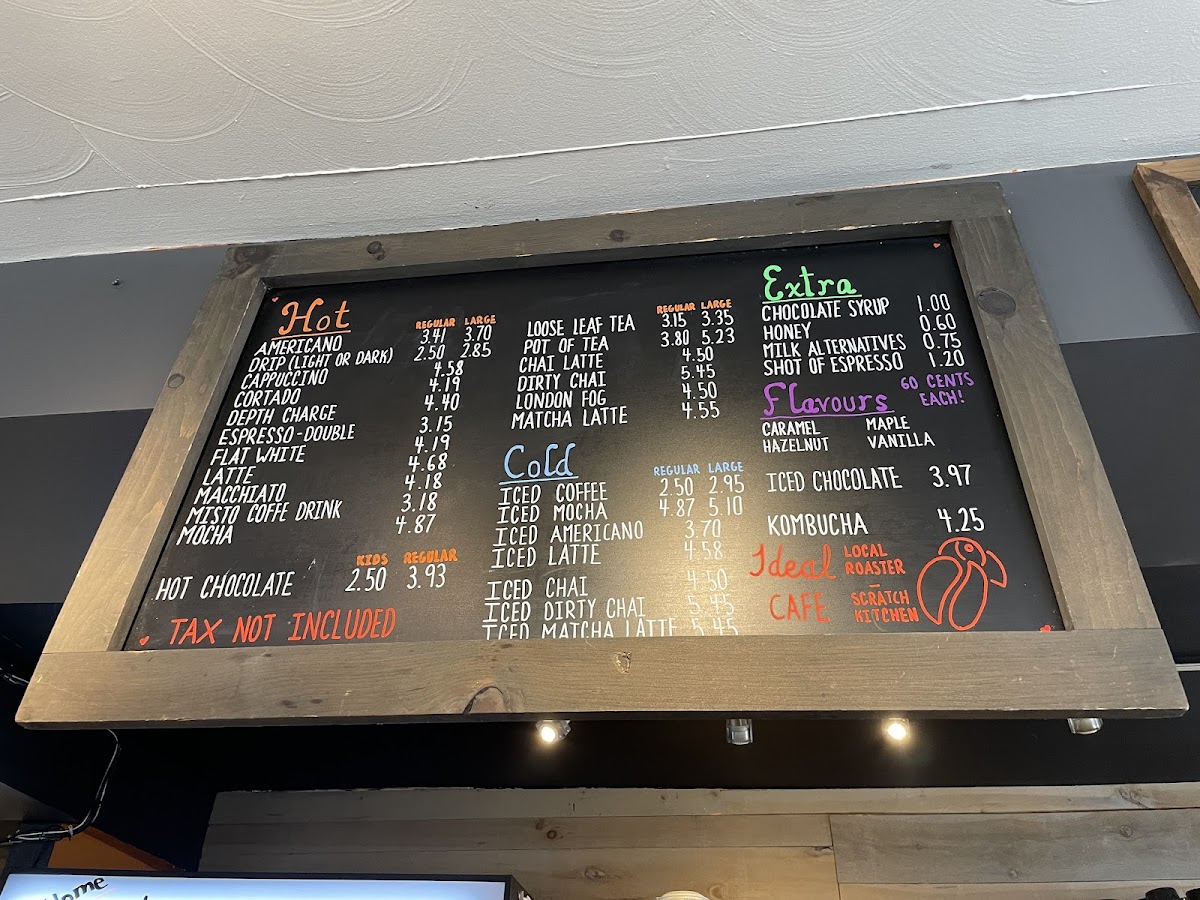 Hot
REGULAR LARGE
AMERICANO 3.41 3.70
DRIP (LIGHT OR DARK) 2.50 2.85
CAPPUCCINO 4.58
CORTADO 4.19
DEPTH CHARGE 4.40
ESPRESSO-DOUBLE 3.15
FLAT WHITE 4.19
LATTE 4.68
MACCHIATO 4.18
MISTO COFFE DRINK 3.18
MOCHA 4.87
KIDS REGULAR
HOT CHOCOLATE 2.50 3.93
TAX NOT INCLUDED
REGULAR LARGE
LOOSE LEAF TEA 3.15 3.35
POT OF TEA 3.80 5.23
CHAI LATTE 4.50
DIRTY CHAI 5.45
LONDON FOG 4.50
MATCHA LATTE 4.55
Cold
REGULAR LARGE
ICED COFFEE 2.50 2.95
ICED MOCHA 4.87 5.10
ICED AMERICANO 3.70
ICED LATTE 4.58
ICED CHAI 4.50
ICED DIRTY CHAI 5.45
ICED MATCHA LATTE 5.45
Extra
CHOCOLATE SYRUP 1.00
HONEY 0.60
MILK ALTERNATIVES 0.75
SHOT OF ESPRESSO 1.20
Flavours 60 CENTS
EACH!
CARAMEL MAPLE
HAZELNUT VANILLA
ICED CHOCOLATE 3.97
KOMBUCHA 4.25
Ideal
CAFE
LOCAL
ROASTER
-
SCRATCH
KITCHEN
Home